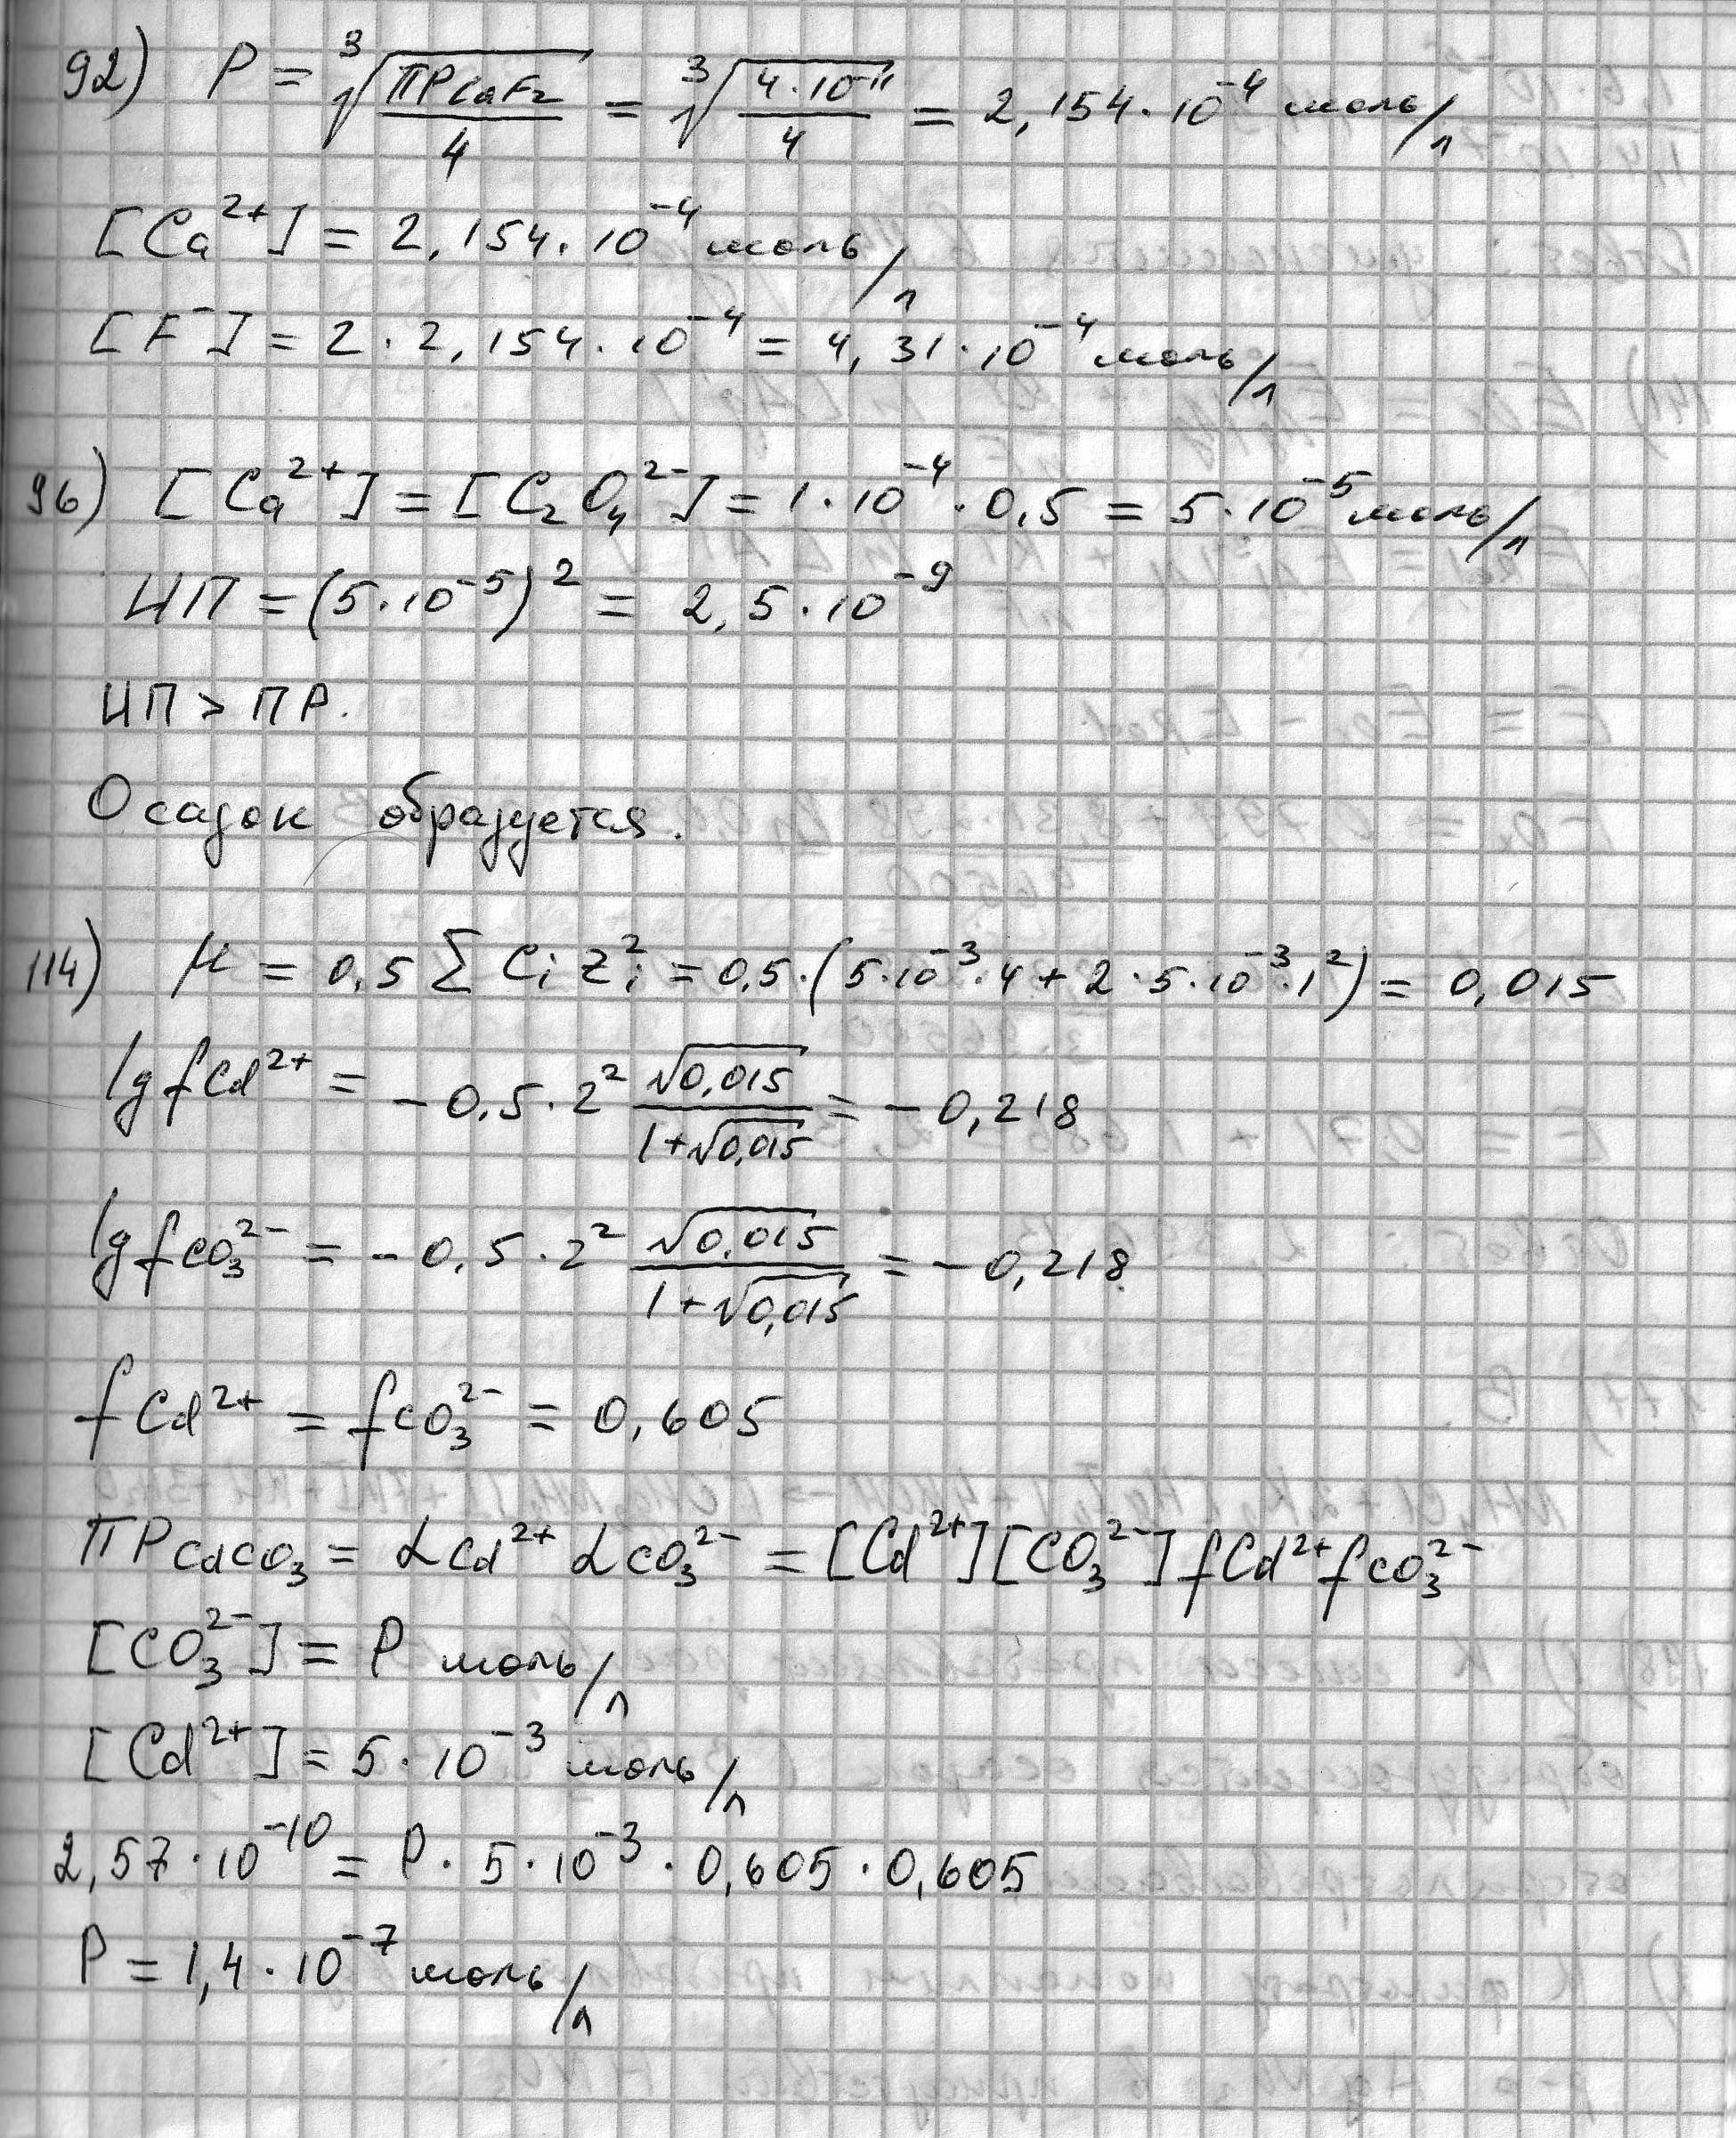 92) P = ∛(ПР CaF₂ / 4) = ∛(4·10⁻¹¹ / 4) = 2,154·10⁻⁴ моль/л
[Ca²⁺] = 2,154·10⁻⁴ моль/л
[F⁻] = 2·2,154·10⁻⁴ = 4,31·10⁻⁴ моль/л
96) [Ca²⁺] = [C₂O₄²⁻] = 1·10⁻⁴·0,5 = 5·10⁻⁵ моль/л
ИП = (5·10⁻⁵)² = 2,5·10⁻⁹
ИП > ПР.
Осадок образуется.
114) μ = 0,5 Σ Cᵢ Zᵢ² = 0,5·(5·10⁻³·4 + 2·5·10⁻³·1²) = 0,015
lg fCd²⁺ = -0,5·2² √0,015 / (1+√0,015) = -0,218
lg fCO₃²⁻ = -0,5·2² √0,015 / (1+√0,015) = -0,218
fCd²⁺ = fCO₃²⁻ = 0,605
ПР CdCO₃ = αCd²⁺ αCO₃²⁻ = [Cd²⁺][CO₃²⁻] fCd²⁺ fCO₃²⁻
[CO₃²⁻] = P моль/л
[Cd²⁺] = 5·10⁻³ моль/л
2,57·10⁻¹⁰ = P·5·10⁻³·0,605·0,605
P = 1,4·10⁻⁷ моль/л